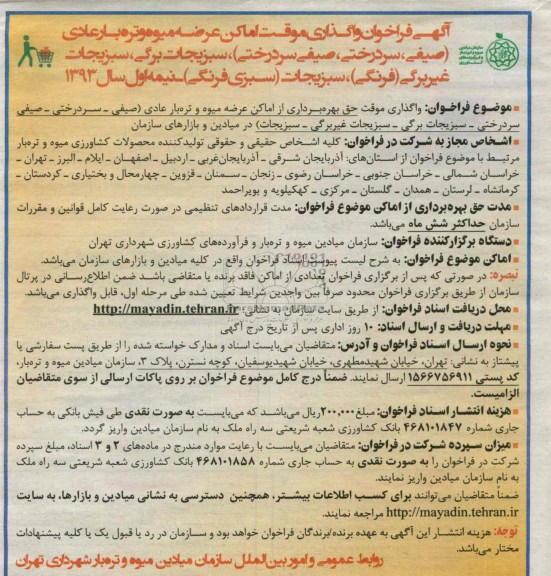 آگهی فراخوان واگذاری موقت اماکن عرضه میوه و تره‌بار عادی
(صیفی، سردرختی، صیفی سردرختی)، سبزیجات برگی، سبزیجات
غیربرگی (فرنگی)، سبزیجات (سبزی فرنگی) ـ نیمه اول سال ۱۳۹۳
■ موضوع فراخوان: واگذاری موقت حق بهره‌برداری از اماکن عرضه میوه و تره‌بار عادی (صیفی ـ سردرختی ـ صیفی
سردرختی ـ سبزیجات برگی ـ سبزیجات غیربرگی ـ سبزیجات) در میادین و بازارهای سازمان
■ اشخاص مجاز به شرکت در فراخوان: کلیه اشخاص حقیقی و حقوقی تولیدکننده محصولات کشاورزی میوه و تره‌بار
مرتبط با موضوع فراخوان از استان‌های: آذربایجان شرقی ـ آذربایجان‌غربی ـ اردبیل ـ اصفهان ـ ایلام ـ البرز ـ تهران ـ
خراسان شمالی ـ خراسان جنوبی ـ خراسان رضوی ـ زنجان ـ سمنان ـ قزوین ـ چهارمحال و بختیاری ـ کردستان ـ
کرمانشاه ـ لرستان ـ همدان ـ گلستان ـ مرکزی ـ کهکیلویه و بویراحمد
■ مدت حق بهره‌برداری از اماکن موضوع فراخوان: مدت قراردادهای تنظیمی در صورت رعایت کامل قوانین و مقررات
سازمان حداکثر شش ماه می‌باشد.
■ دستگاه برگزارکننده فراخوان: سازمان میادین میوه و تره‌بار و فرآورده‌های کشاورزی شهرداری تهران
■ اماکن موضوع فراخوان: به شرح لیست پیوست اسناد فراخوان واقع در کلیه میادین و بازارهای سازمان می‌باشد.
تبصره: در صورتی که پس از برگزاری فراخوان تعدادی از اماکن فاقد برنده یا متقاضی باشد ضمن اطلاع‌رسانی در پرتال
سازمان از طریق برگزاری فراخوان محدود صرفاً بین واجدین شرایط تعیین شده طی مرحله اول، قابل واگذاری می‌باشد.
■ محل دریافت اسناد فراخوان: از طریق سایت سازمان به نشانی: http://mayadin.tehran.ir
■ مهلت دریافت و ارسال اسناد: ۱۰ روز اداری پس از تاریخ درج آگهی
■ نحوه ارسال اسناد فراخوان و آدرس: متقاضیان می‌بایست اسناد و مدارک خواسته شده را از طریق پست سفارشی یا
پیشتاز به نشانی: تهران، خیابان شهیدمطهری، خیابان شهیدیوسفیان، کوچه نسترن، پلاک ۳، سازمان میادین میوه و تره‌بار،
کد پستی ۱۵۶۶۷۵۶۹۱۱ ارسال نمایند. ضمناً درج کامل موضوع فراخوان بر روی پاکات ارسالی از سوی متقاضیان
الزامیست.
■ هزینه انتشار اسناد فراخوان: مبلغ ۲۰۰,۰۰۰ ریال می‌باشد که می‌بایست به صورت نقدی طی فیش بانکی به حساب
جاری شماره ۴۶۸۱۰۱۸۴۷ بانک کشاورزی شعبه شریعتی سه راه ملک به نام سازمان میادین واریز گردد.
■ میزان سپرده شرکت در فراخوان: متقاضیان می‌بایست با رعایت موارد مندرج در ماده‌های ۲ و ۳ اسناد، مبلغ سپرده
شرکت در فراخوان را به صورت نقدی به حساب جاری شماره ۴۶۸۱۰۱۸۵۸ بانک کشاورزی شعبه شریعتی سه راه ملک
به نام سازمان میادین واریز نمایند.
ضمناً متقاضیان می‌توانند برای کسب اطلاعات بیشتر، همچنین دسترسی به نشانی میادین و بازارها، به سایت
http://mayadin.tehran.ir مراجعه نمایند.
توجه: هزینه انتشار این آگهی به عهده برنده/برندگان فراخوان خواهد بود و سازمان در رد یا قبول یک یا کلیه پیشنهادات
مختار می‌باشد.
روابط عمومی و امور بین‌الملل سازمان میادین میوه و تره‌بار شهرداری تهران